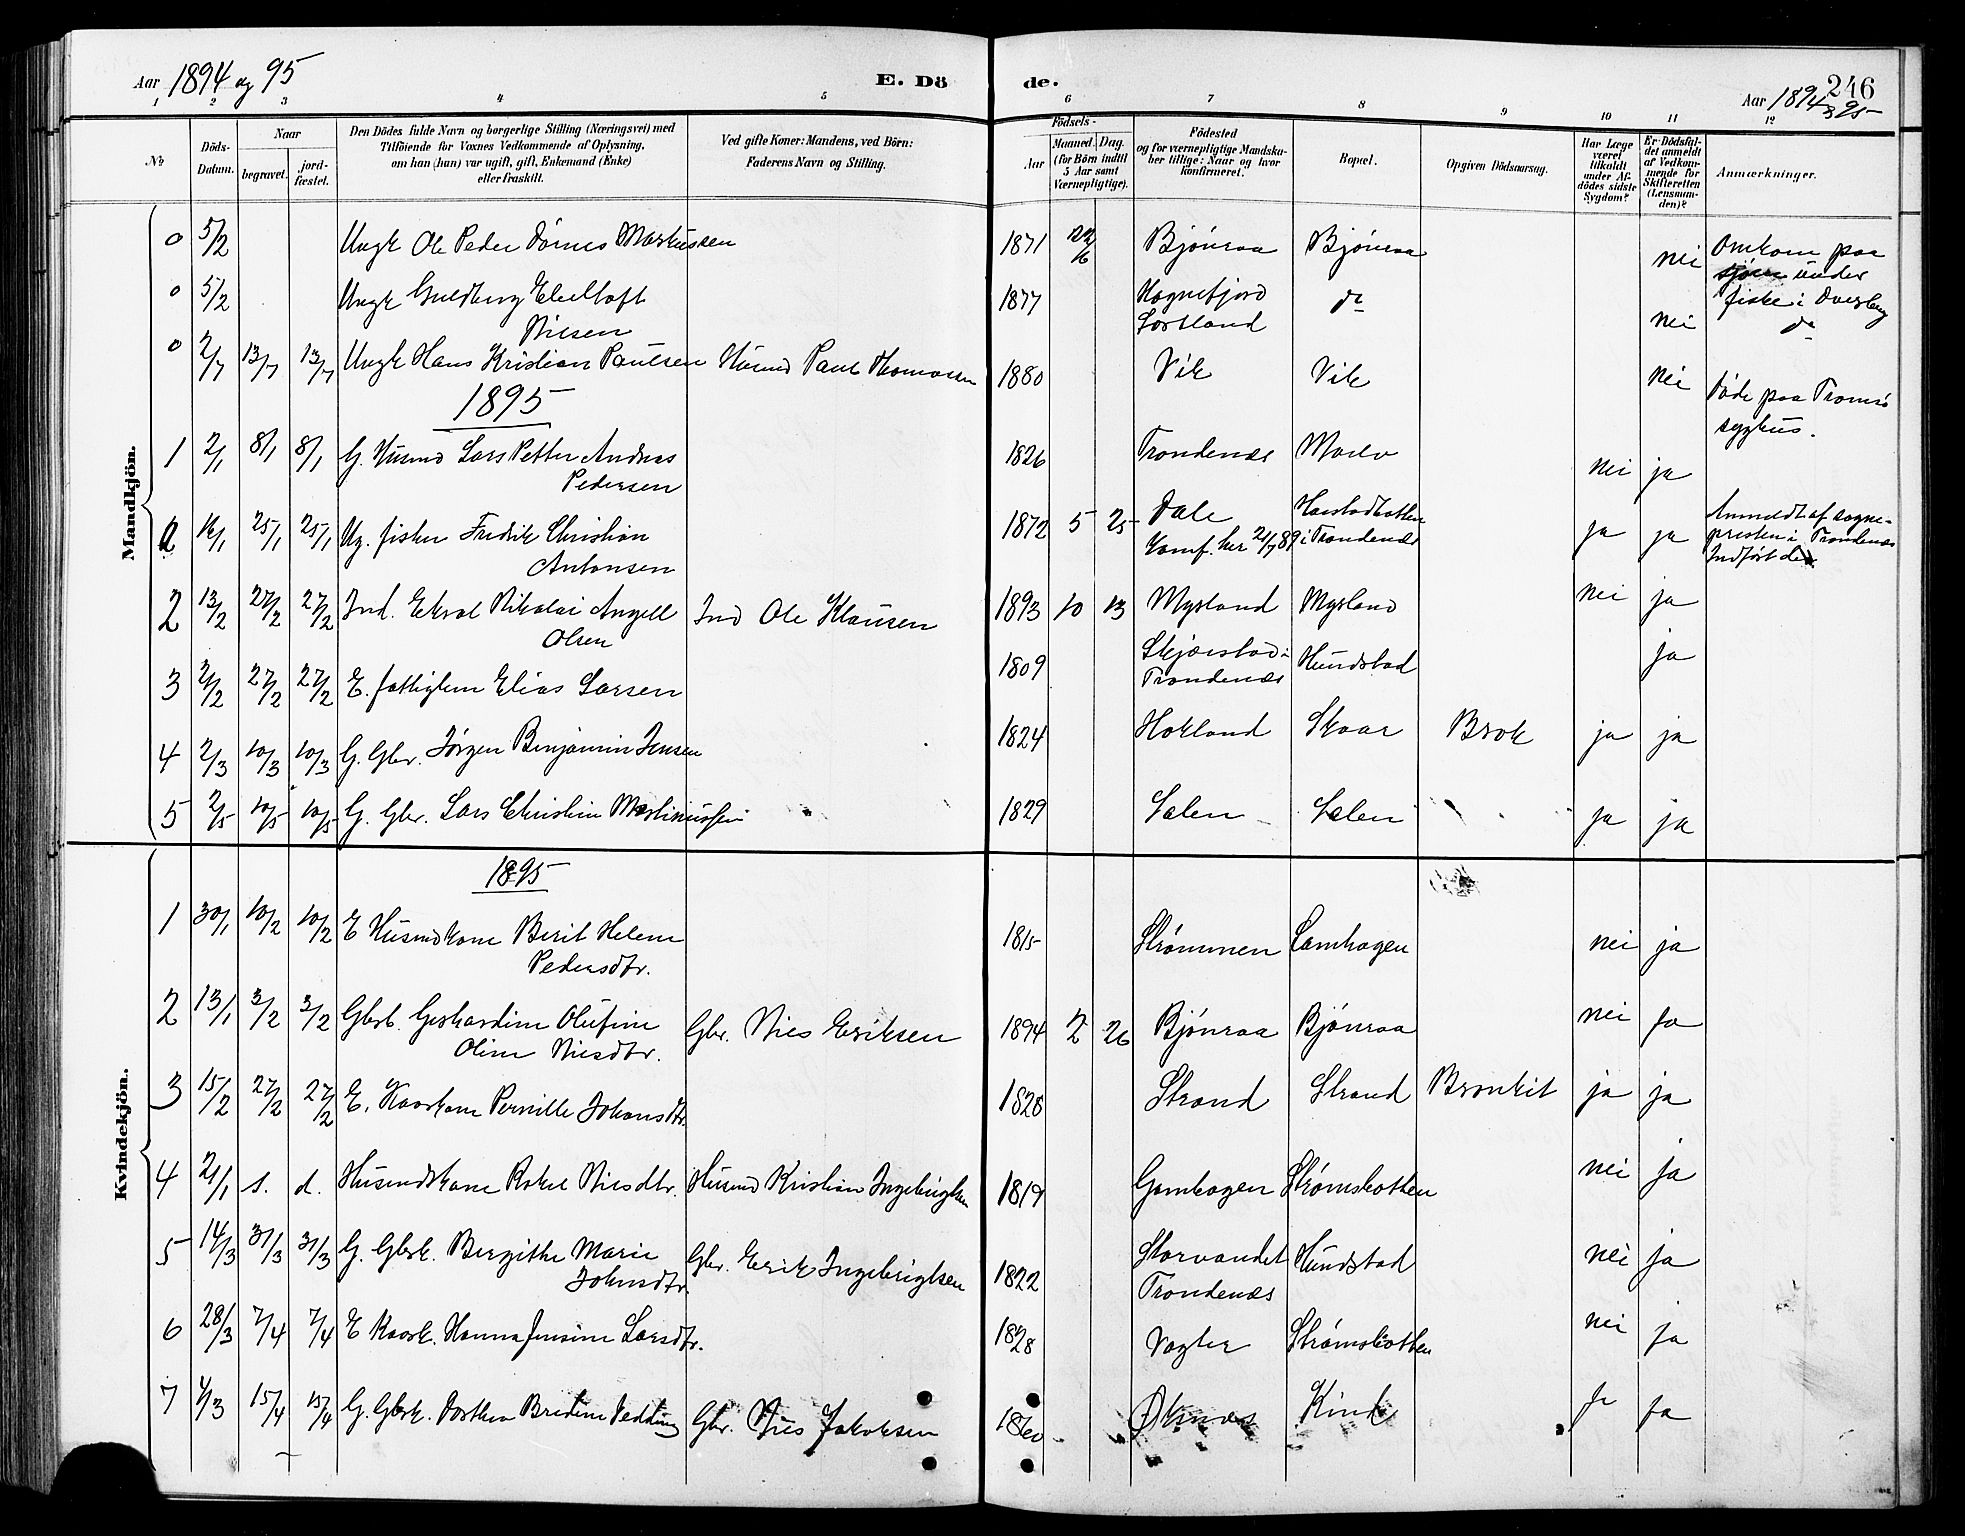 Aar 1894 og 95
E. Dö
de.
Aar 1894 & 95
246
1 2 3 4 5 6 7 8 9 10 11 12
No
Döds-Datum.
Naar
begravet.
jord-fæstet.
Den Dödes fulde Navn og borgerlige Stilling (Næringsvei) med
Tilföiende for Voxnes Vedkommende af Oplysning,
om han (hun) var ugift, gift, Enkemand (Enke)
eller fraskilt.
Ved gifte Koner: Mandens, ved Börn:
Faderens Navn og Stilling.
Födsels-
Aar
Maaned. Dag.
(for Börn indtil
5 Aar samt
Værnepligtige).
Födested
og for værnepligtige Mandska-
ber tillige: Naar og hvor
konfirmeret.
Bopæl.
Opgiven Dödsaarsag.
Har Læge
været
tilkaldt
under Af-
dödes sidste
Sygdom?
Er Dödsfal-
det anmeldt
af Vedkom-
mende for
Skifteretten
(Lensman-
den)?
Anmærkninger.
Mandkjön.
0 5/2 Ungk Ole Peder Dørnes Markussen 1871 22/6 Bjönraa Bjönraa nei Omkom paa
sjøen under
fiske i Oversberg
0 5/2 Ungk Guldberg Ebeltoft
Nilsen 1877 Kognefjord
Sortland do nei do
0 2/7 13/7 13/7 Ungk Hans Kristian Paulsen Husmd Paul Thomassen 1880 Vik Vik nei Døde paa Tromsø
sygehus.
1895
1 2/1 8/1 8/1 G. Husmd Lars Petter Andreas
Pedersen 1826 Trondenæs Maelv nei ja
2 16/1 25/1 25/1 Ug. fisker Fredrik Christian
Antonsen 1872 5 25 Dale
Konf. her 21/7 89 Harstadbotten
i Trondenæs ja ja Anmeldt af sogne-
presten i Trondenæs
Indført der.
2 13/2 27/2 27/2 Ind. Edval Nikolai Angell
Olsen Ind Ole Klausen 1893 10 13 Mysland Mysland nei ja
3 2/2 27/2 27/2 E. fattiglem Elias Larsen 1809 Skjærstad i
Trondenæs Hundstad ja
4 2/3 10/3 10/3 G. Gbr. Jørgen Benjamin Jensen 1824 Hokland Skaar Brok ja ja
5 2/5 10/5 10/5 G. Gbr. Lars Christian Martinussen 1829 Salen Salen ja ja
Kvindekjön.
1895
1 30/1 10/2 10/2 E Husmdkone Berit Helene
Pedersdtr. 1815 Strömmen Lamhagen nei ja
2 13/1 3/2 3/2 Gbrb. Gerhardine Olufine
Oline Nilsdtr. Gbr. Nils Eriksen 1894 2 26 Bjönraa Bjönraa nei Ja
3 15/2 27/2 27/2 E. Kaarkone Pernille Johansdtr. 1828 Strand Strand Bronkit ja ja
4 21/1 s. d. Husmdskone Rakel Nilsdtr. Husmd Kristian Ingebrigtsen 1819 Gamhagen Strømsbotten nei ja
5 14/3 31/3 31/3 G. Gbrk. Bergithe Marie
Johnsdtr. Gbr. Erik Ingebrigtsen 1822 Storvandet
Trondenæs Hundstad nei ja
6 28/3 7/4 7/4 E Kaark. Hanna Jensine Larsdtr. 1828 Vagler Strømsbotten nei ja
7 4/3 15/4 15/4 G. Gbrk. Dorthea Bredine Dedding Gbr. Nils Jakobsen 1860 Øknæs Kind ja ja